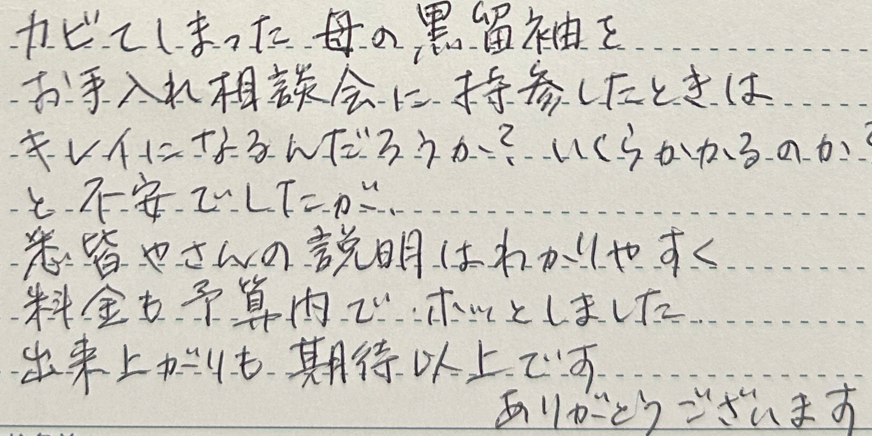 カビてしまった母の黒留袖を
お手入れ相談会に持参したときは
キレイになるんだろうか？いくらかかるのか？
と不安でしたが、
悉皆やさんの説明はわかりやすく
料金も予算内で ホッとしました
出来上がりも期待以上です
ありがとうございます